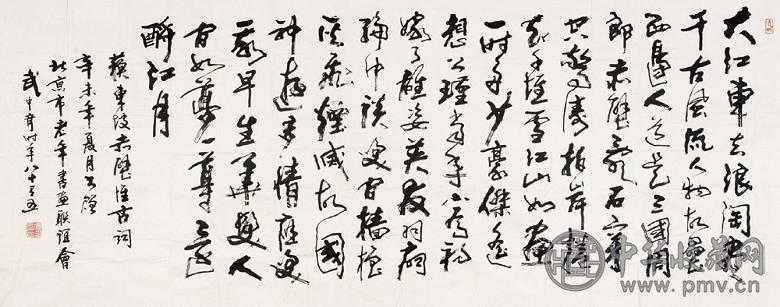 大江東去浪淘尽
千古風流人物故壘
西邊人道是三國周
郎赤壁亂石穿
空驚濤拍岸捲
起千堆雪江山如畫
一時多少豪傑遙
想公瑾當年小喬初
嫁了雄姿英發羽扇
綸巾談笑間檣櫓
灰飛煙滅故國
神遊多情應笑
我早生華髮人
間如夢一尊還
酹江月
蘇東坡赤壁懷古詞
辛未年夏月書贈
北京市老年書畫聯誼會
武中奇時年八十有五
中华收藏网
www.pmv.cn